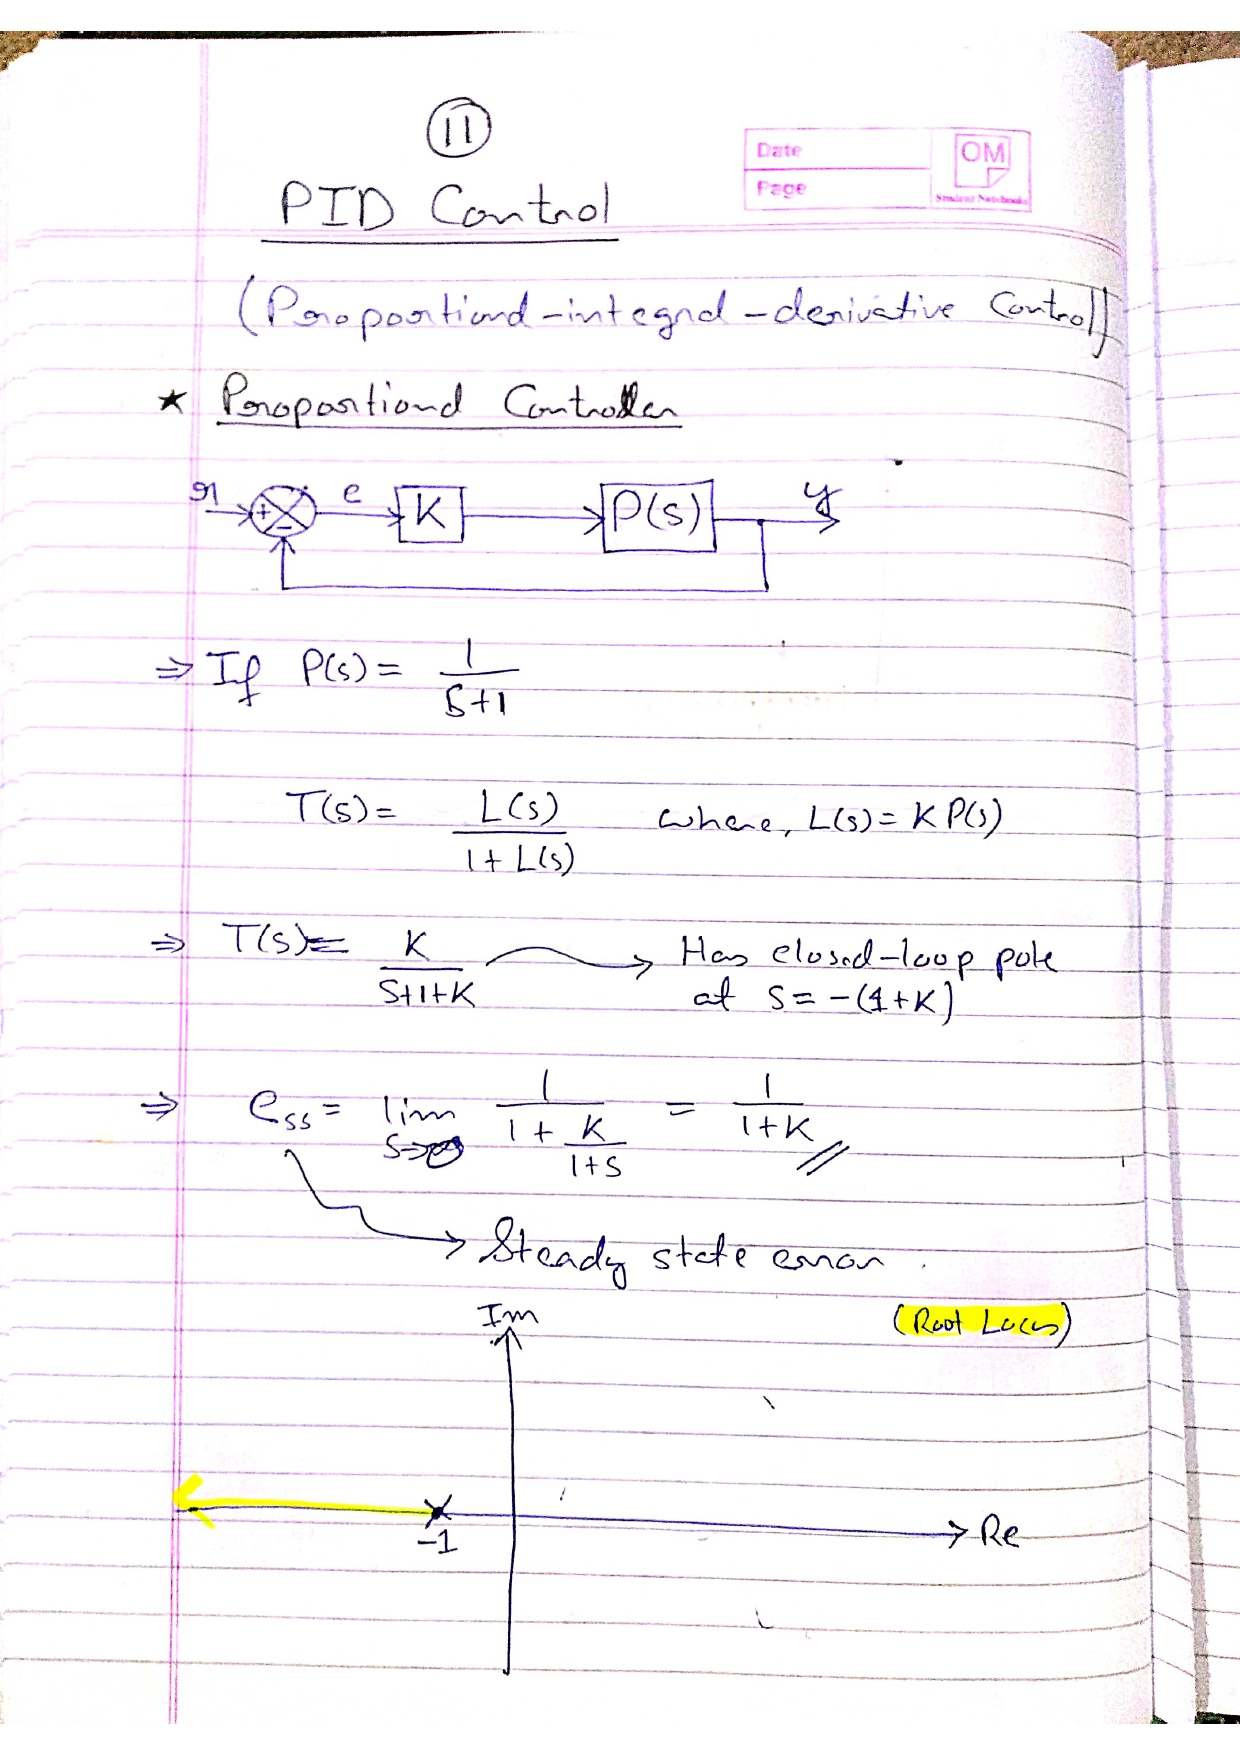 11
Date
OM
Page
Student Notebooks
PID Control
(Proportional-integral-derivative Control)
★ Proportional Controller
r + - e K P(s) y
⇒ If P(s) = 1/(s+1)
T(s) = L(s)/(1+L(s)) where, L(s) = K P(s)
⇒ T(s) = K/(s+1+K) → Has closed-loop pole
at s = -(1+K)
⇒ ess = lim s→0 1/(1+K/(1+s)) = 1/(1+K)
→ Steady state error.
Im
(Root Locus)
-1
Re